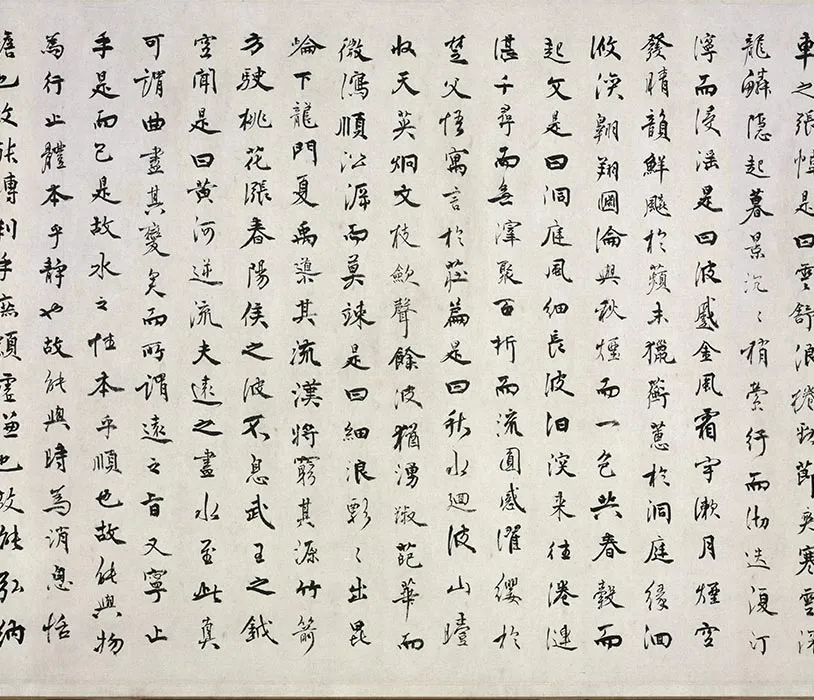 車之張幄是曰雲舒浪捲秋節爽寒雲深
龍鱗隱起暮景沉〻稍縈行而沕迭復汀
濘而浸淫是曰波蹙金風霜宇漱月煙空
發晴韻鮮飈於蘋末獵蘅蕙於洞庭緣洄
洑渙翱翔圓淪與秋煙而一色共春縠而
起文是曰洞庭風細長波汩淏來往淹漣
湛千尋而無滓聚百折而流圓感濯纓於
楚父悟寓言於莊篇是曰秋水迴波山曀
收天英炯文忮歛聲餘波猶湧淑葩華而
微瀉順江源而莫竦是曰細浪〻出崑
崙下龍門夏禹渠其流漢將窮其源竹箭
方駛桃花漲春陽侯之波不息武王之鉞
空聞是曰黃河逆流夫遠之畫水至此真
可謂曲盡其變矣而所謂遠之旨又寧止
手是而已是故水之性本乎順也故能與物
為行止體本乎靜也故能與時為消息恬
澹也故能轉利手無頗虛盈也故能弘納